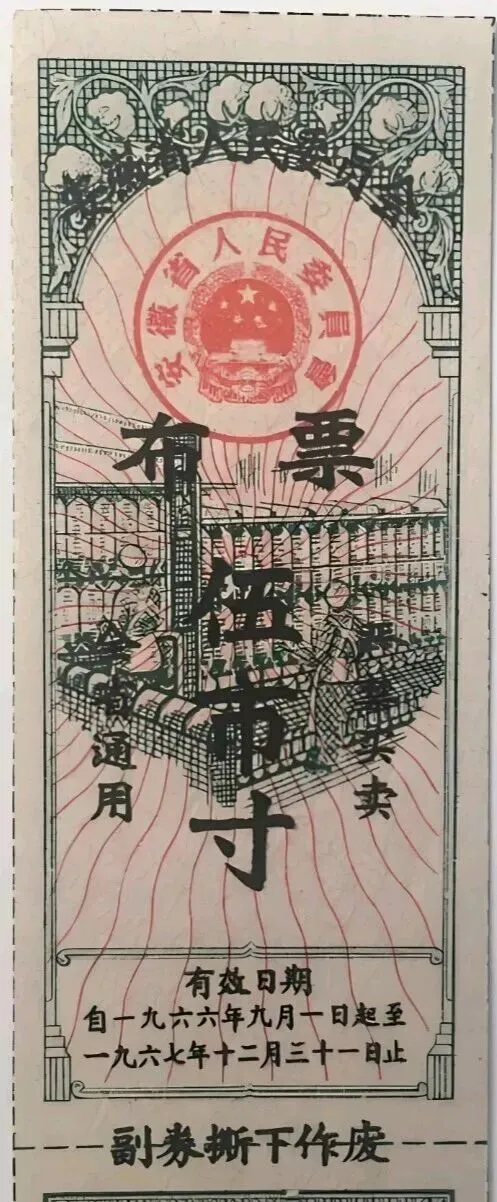 安徽省人民委员会
安徽省人民委員會
布票
伍市寸
全省通用
严禁买卖
有效日期
自一九六六年九月一日起至
一九六七年十二月三十一日止
副券撕下作废